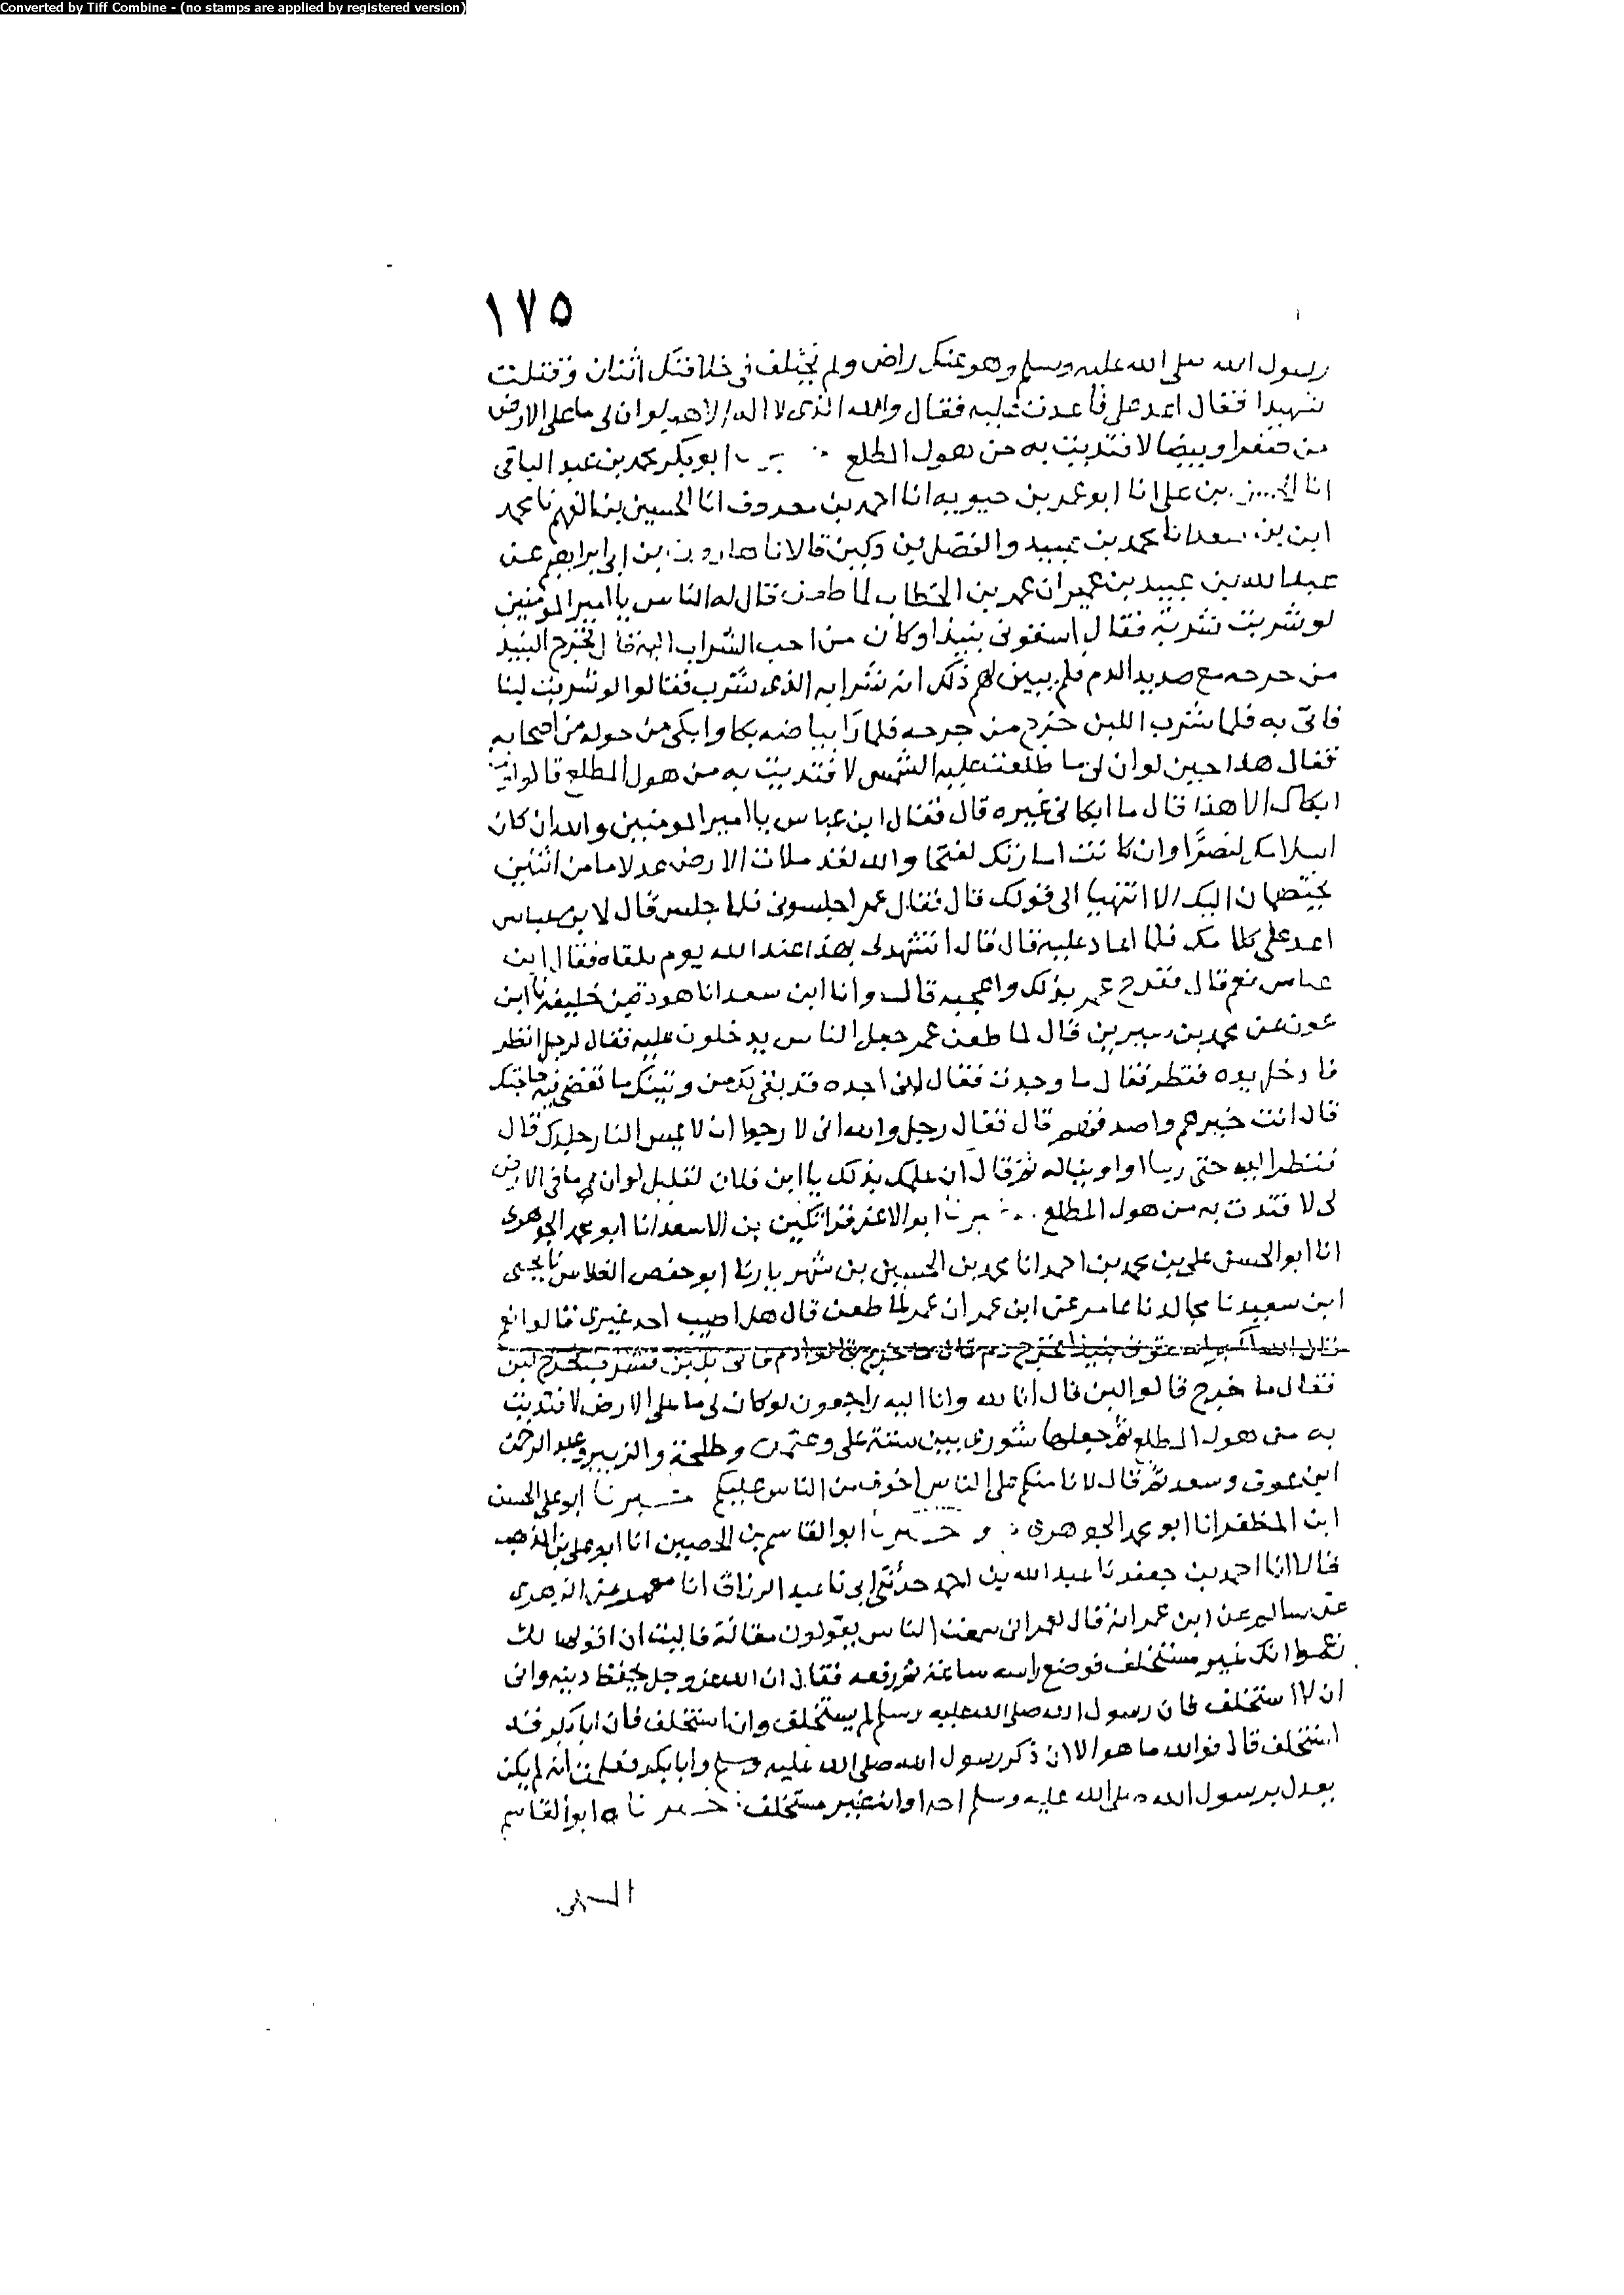 Converted by Tiff Combine - (no stamps are applied by registered version)
١٧٥
رسول الله صلى الله عليه وسلم وهو عنك راض ولم يختلف في خلافتك اثنان وقتلت
شهيدا فقال اعد علي فاعدت عليه فقال والله الذي لا اله الا هو لو ان لي ما على الارض
من صفرا وبيضا لافتديت به من هول المطلع ابو بكر محمد بن عبد الباقي
انا بن علي انا ابو عمر بن حيويه انا احمد بن معروف انا الحسين بن الفهم نا محمد
ابن بن سعد انا محمد بن عبيد والفضل بن دكين قالا نا هارون بن ابي ابراهيم عن
عبد الله بن عبيد بن عمير ان عمر بن الخطاب لما طعن قال له الناس يا امير المومنين
لو شربت شربة فقال اسقوني نبيذا وكان من احب الشراب اليه قال فخرج النبيذ
من جرحه مع صديد الدم فلم يبين لهم ذلك انه شرابه الذي شرب فقالوا لو شربت لبنا
فاتي به فلما شرب اللبن خرج من جرحه فلما رأى بياضه بكا وابكى من حوله من اصحابه
فقال هذا حين لو ان لي ما طلعت عليه الشمس لافتديت به من هول المطلع قالوا
ابكاك الا هذا قال ما ابكاني غيره قال فقال ابن عباس يا امير المومنين والله ان كان
اسلامك لنصرا وان كانت امارتك لفتحا والله لقد ملات الارض عدلا ما من اثنين
يختصمان اليك الا انتهيا الى قولك قال فقال عمر اجلسوني فلما جلس قال لابن عباس
اعد علي كلامك فلما اعاد عليه قال قال اتشهد لي بهذا عند الله يوم تلقاه فقال ابن
عباس نعم قال ففرح عمر بذلك واعجبه قال وانا ابن سعد انا هوذة بن خليفة نا ابن
عون عن محمد بن سيرين قال لما طعن عمر جعل الناس يدخلون عليه فقال لرجل انظر
فادخل يده فنظر فقال ما وجدت فقال اني اجده قد بقي لك من وتينك ما تقضي فيه حاجتك
قال انت خيرهم واصدقهم قال فقال رجل والله اني لارجوا ان لا يمس النار جلدك قال
فنظر اليه حتى رثينا او اوينا له ثم قال ان علمك بذلك يا ابن فلان لقليل لو ان لي ما في الارض
لي لافتدت به من هول المطلع ابو الاعز قراتكين بن الاسعد انا ابو محمد الجوهري
انا ابو الحسن علي بن محمد بن احمد انا محمد بن الحسين بن شهريار نا ابو حفص الفلاس نا يحيى
ابن سعيد نا مجالد نا عامر عن ابن عمر ان عمر لما طعن قال هل اصيب احد غيري قالوا نعم
فقال ما خرج قالوا لبن قال انا لله وانا اليه راجعون لو كان لي ما على الارض لافتديت
به من هول المطلع ثم جعلها شورى بين ستة علي وعثمن وطلحة والزبير وعبد الرحمن
ابن عوف وسعد ثم قال لانا منكم على الناس اخوف من الناس عليكم ابو علي الحسن
ابن المظفر انا ابو محمد الجوهري و ابو القاسم بن الحصين انا ابو علي بن المذهب
قالا انا احمد بن جعفر نا عبد الله بن احمد حدثني ابي نا عبد الرزاق انا معمر عن الزهري
عن سالم عن ابن عمر انه قال لعمر اني سمعت الناس يقولون مقالة فاليت ان اقولها لك
زعموا انك غير مستخلف فوضع راسه ساعة ثم رفعه فقال ان الله عز وجل يحفظ دينه واني
ان لا استخلف فان رسول الله صلى الله عليه وسلم لم يستخلف وان استخلف فان ابا بكر قد
استخلف قال فوالله ما هو الا ان ذكر رسول الله صلى الله عليه وسلم وابا بكر فعلمت انه لم يكن
يعدل برسول الله صلى الله عليه وسلم احدا وانه غير مستخلف ابو القاسم